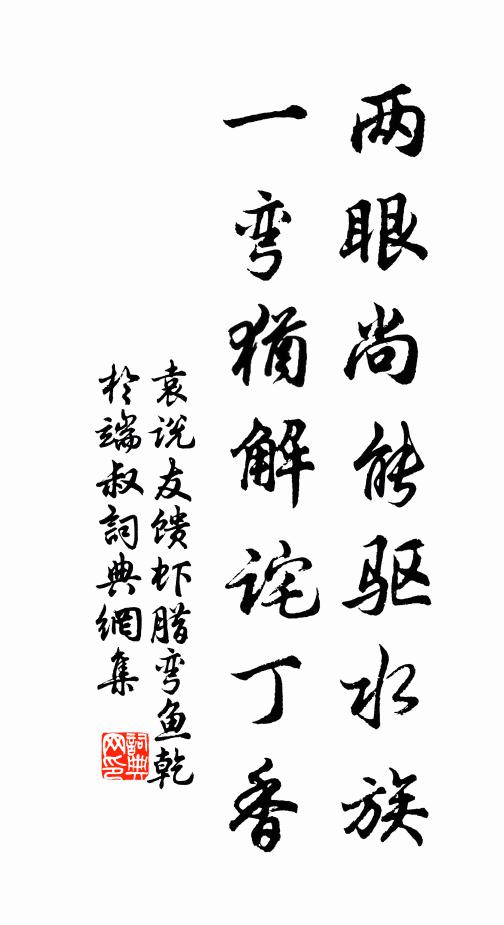 两眼尚能驱水族
一弯犹解诧丁香
袁说友馈虾腊弯鱼乾
於端叔詞典網集
詞典
网印